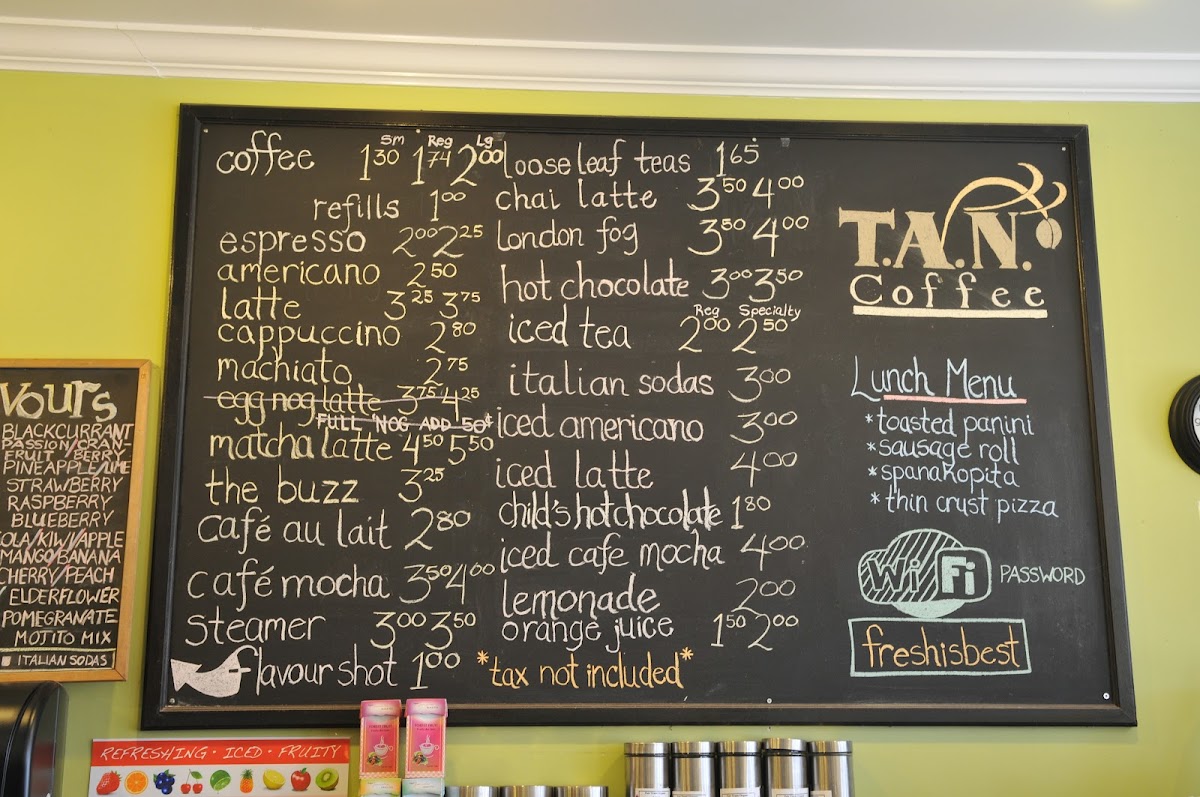 Sm Reg Lg
coffee 1.30 1.74 2.00
refills 1.00
espresso 2.00 2.25
americano 2.50
latte 3.25 3.75
cappuccino 2.80
machiato 2.75
egg nog latte 3.75 4.25
FULL 'NOG ADD 50¢
matcha latte 4.50 5.50
the buzz 3.25
café au lait 2.80
café mocha 3.50 4.00
steamer 3.00 3.50
flavour shot 1.00
loose leaf teas 1.65
chai latte 3.50 4.00
london fog 3.50 4.00
hot chocolate 3.00 3.50
Reg Specialty
iced tea 2.00 2.50
italian sodas 3.00
iced americano 3.00
iced latte 4.00
child's hot chocolate 1.80
iced cafe mocha 4.00
lemonade 2.00
orange juice 1.50 2.00
*tax not included*
T.A.N.
Coffee
Lunch Menu
*toasted panini
*sausage roll
*spanakopita
*thin crust pizza
WiFi PASSWORD
freshisbest
vours
BLACKCURRANT
PASSION/CRAN-
FRUIT / BERRY
PINEAPPLE/LIME
STRAWBERRY
RASPBERRY
BLUEBERRY
OLA/KIWI/APPLE
MANGO/BANANA
CHERRY/PEACH
ELDERFLOWER
POMEGRANATE
MOJITO MIX
ITALIAN SODAS
REFRESHING · ICED · FRUITY